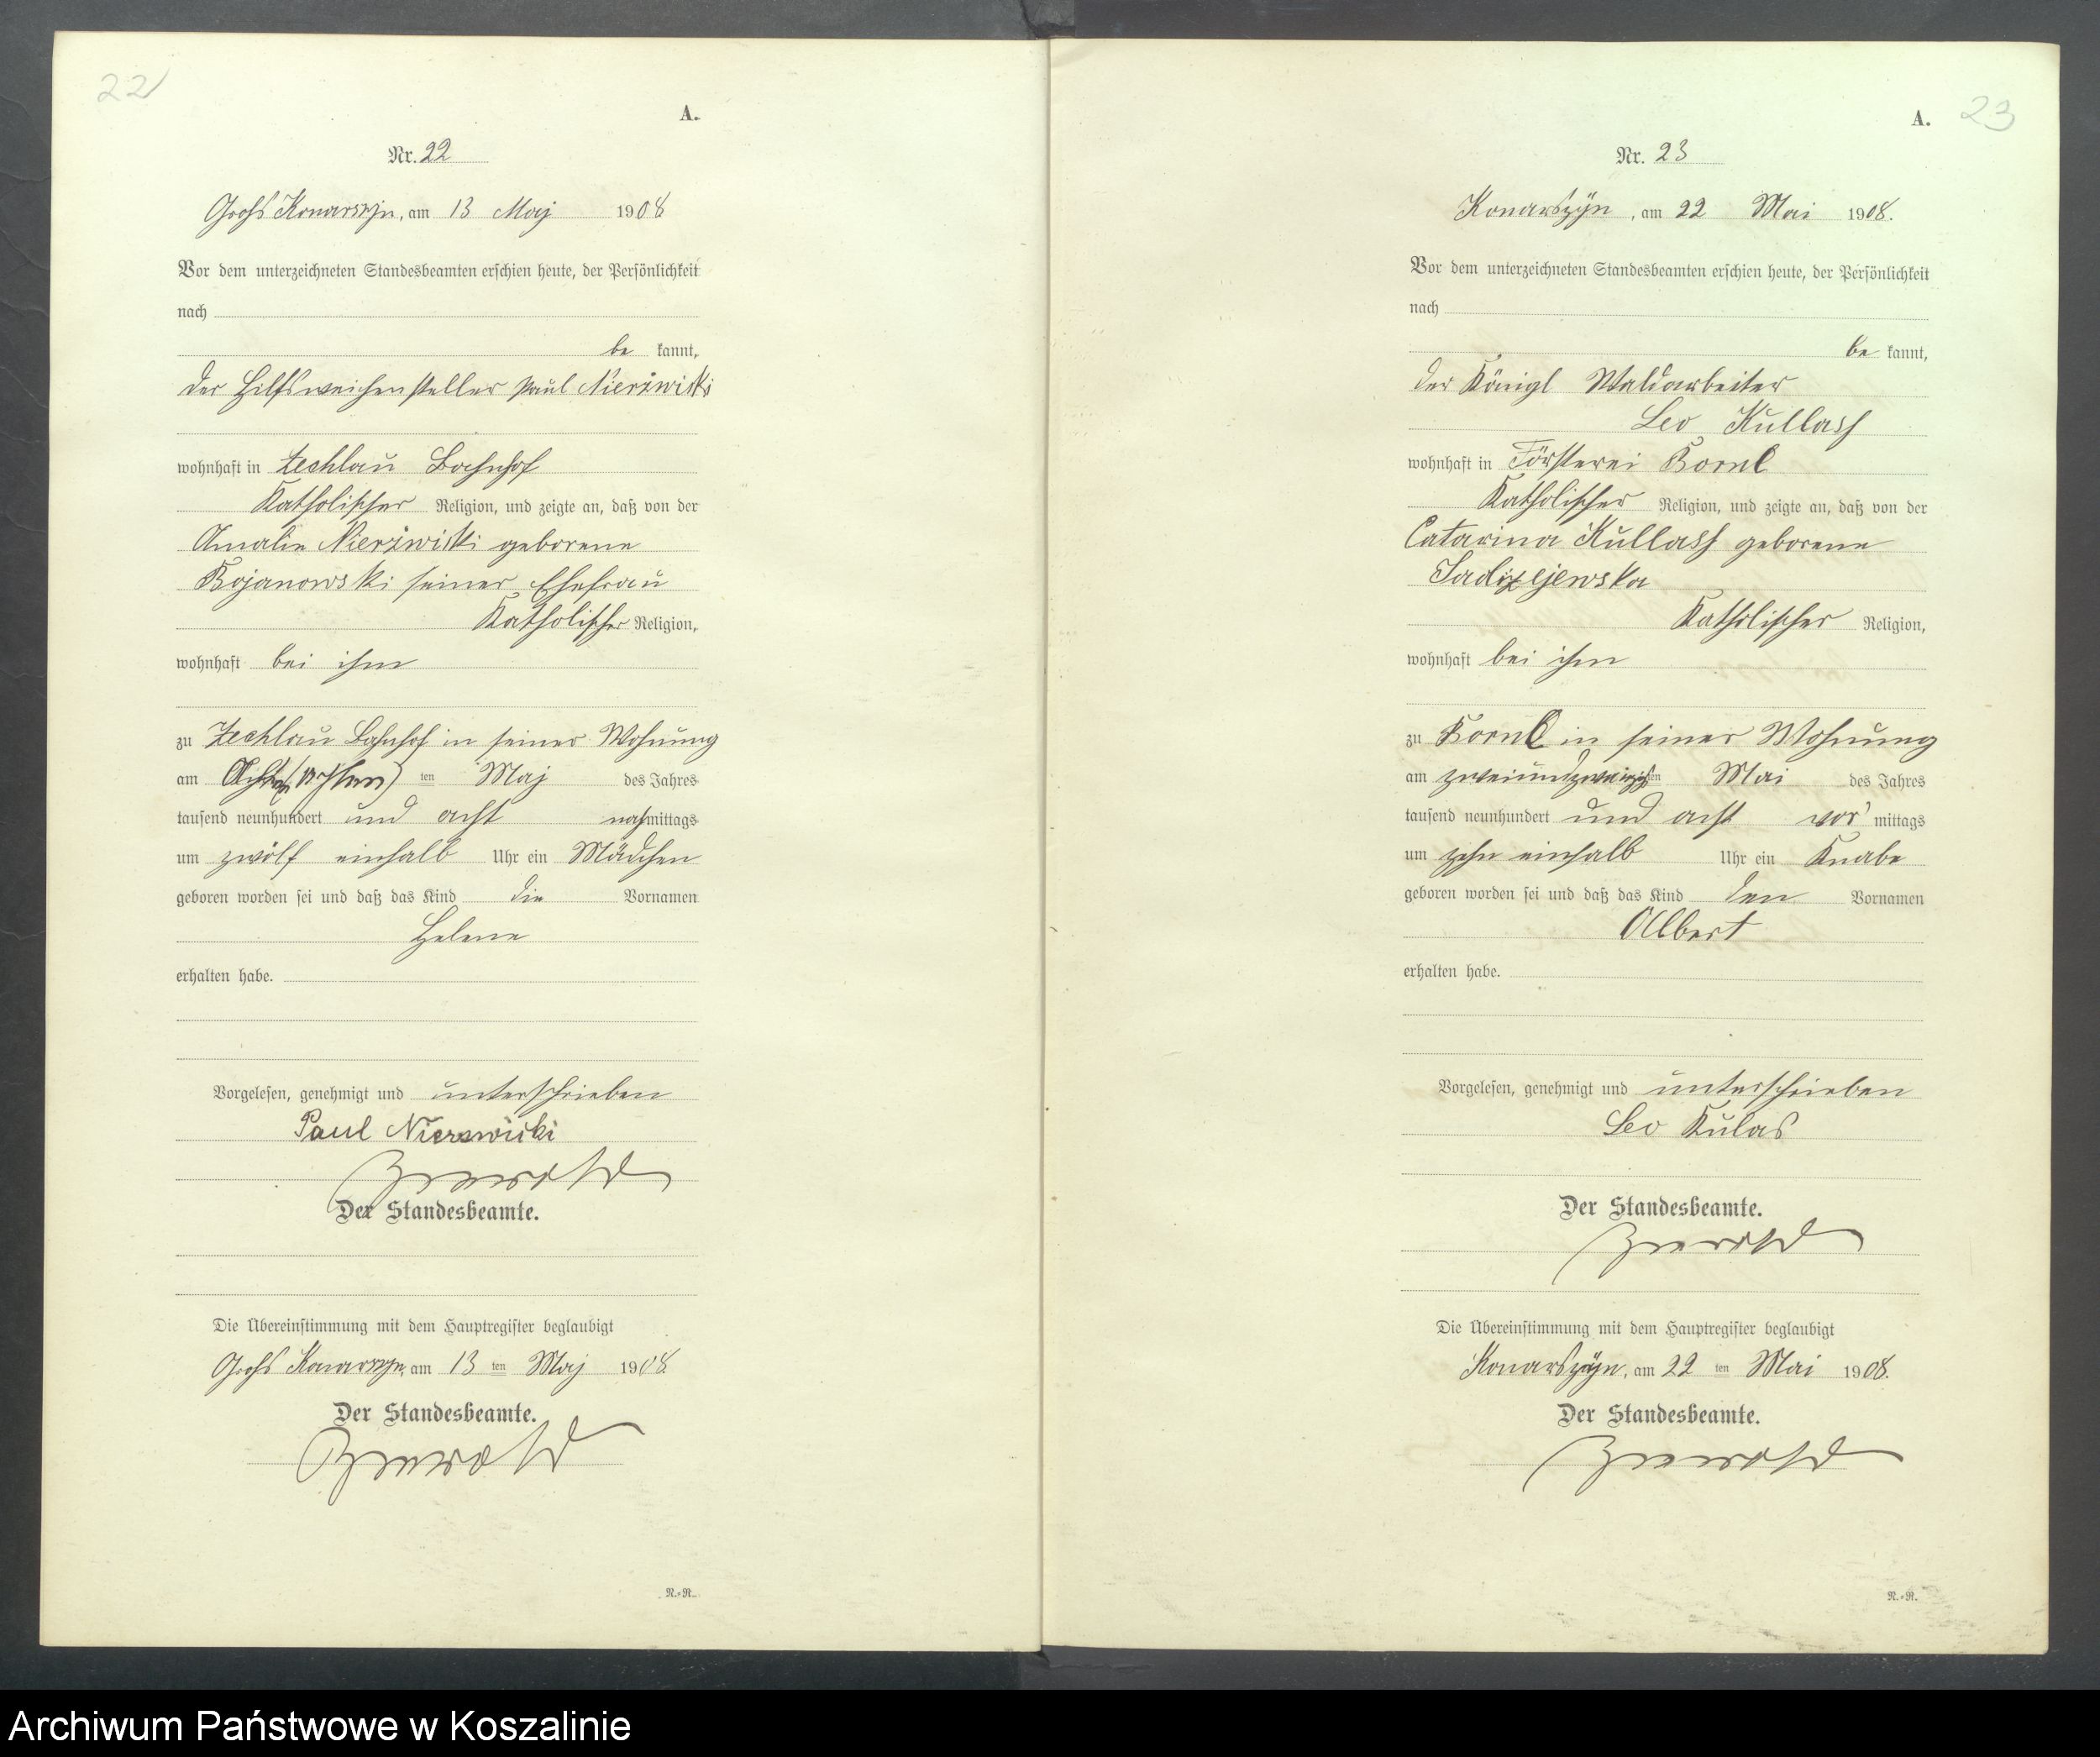 22
A.
Nr. 22
Groß Konarszyn, am 13 Maj 1908
Vor dem unterzeichneten Standesbeamten erschien heute, der Persönlichkeit
nach
be kannt,
der Hilfsweichensteller Paul Nierzwicki
wohnhaft in Zechlau Bahnhof
Katholischer Religion, und zeigte an, daß von der
Amalie Nierzwicki geborene
Bojanowski seiner Ehefrau
Katholischer Religion,
wohnhaft bei ihm
zu Zechlau Bahnhof in seiner Wohnung
am ten Maj des Jahres
tausend neunhundert und acht nachmittags
um zwölf einhalb Uhr ein Mädchen
geboren worden sei und daß das Kind die Vornamen
Helene
erhalten habe.
Vorgelesen, genehmigt und unterschrieben
Paul Nierzwicki
Der Standesbeamte.
Die Übereinstimmung mit dem Hauptregister beglaubigt
Groß Konarszyn, am 13 ten Maj 1908.
Der Standesbeamte.
N.-R.
23
A.
Nr. 23
Konarszyn, am 22 Mai 1908.
Vor dem unterzeichneten Standesbeamten erschien heute, der Persönlichkeit
nach
be kannt,
der Königl Waldarbeiter
Leo Kullass
wohnhaft in Försterei
Katholischer Religion, und zeigte an, daß von der
Catarina Kullass geborene
Katholischer Religion,
wohnhaft bei ihm
zu in seiner Wohnung
am zweiundzwanzigsten Mai des Jahres
tausend neunhundert und acht vor mittags
um zehn einhalb Uhr ein Knabe
geboren worden sei und daß das Kind den Vornamen
Albert
erhalten habe.
Vorgelesen, genehmigt und unterschrieben
Leo Kulas
Der Standesbeamte.
Die Übereinstimmung mit dem Hauptregister beglaubigt
Konarszyn, am 22 ten Mai 1908.
Der Standesbeamte.
N.-R.
Archiwum Państwowe w Koszalinie